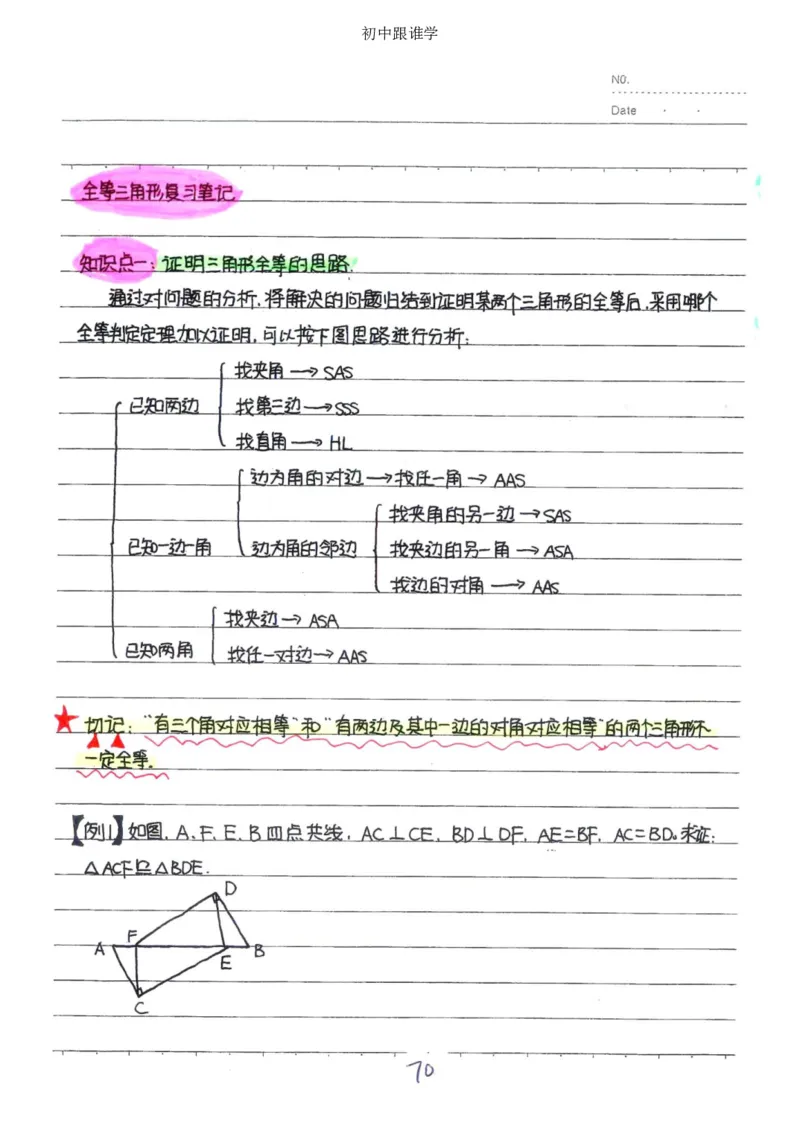 初中跟谁学
NO.
Date
全等三角形复习笔记
知识点一:证明三角形全等的思路.
通过对问题的分析,将解决的问题归结到证明某两个三角形的全等后,采用哪个
全等判定定理加以证明,可以按下图思路进行分析:
找夹角→SAS
已知两边 找第三边→SSS
找直角→HL
边为角的对边→找任一角→AAS
找夹角的另一边→SAS
已知一边一角 边为角的邻边 找夹边的另一角→ASA
找边的对角→AAS
找夹边→ASA
已知两角 找任一对边→AAS
★切记:“有三个角对应相等”和“有两边及其中一边的对角对应相等”的两个三角形不
一定全等.
【例1】如图,A、F、E、B四点共线,AC⊥CE,BD⊥DF,AE=BF,AC=BD。求证:
△ACF≌△BDE.
D
F
A B
E
C
70